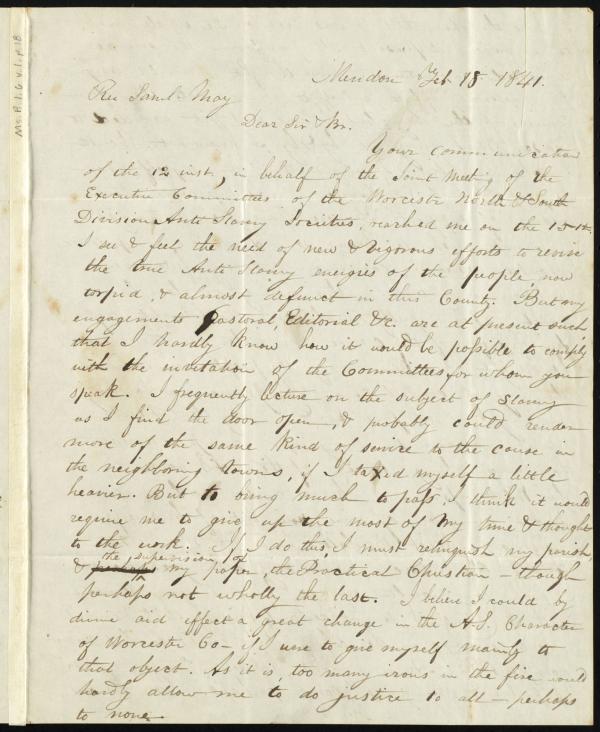 Ms. B. 1. 6 v. 1, p. 18
Mendon Feb. 18 1841.
Rev Saml. May
Dear Sir & Br.
Your communication
of the 12 inst., in behalf of the Joint Meeting of the
Executive Committees, of the Worcester North & South
Division Anti Slavery Societies, reached me on the 15th.
I see & feel the need of new & vigorous efforts to revive
the true Anti Slavery energies of the people, now
torpid, & almost defunct in this County. But my
engagements Pastoral, Editorial &c. are at present such
that I hardly know how it would be possible to comply
with the invitation of the Committees for whom you
speak. I frequently lecture on the subject of Slavery
as I find the door open, & probably could render
more of the same kind of service to the cause in
the neighboring towns, if I taxed myself a little
heavier. But to bring much to pass, I think it would
require me to give up the most of my time & thought
to the work. If I do this, I must relinquish my parish,
& perhaps the supervision of my paper, the Practical Christian — though
perhaps not wholly the last. I believe I could by
divine aid effect a great change in the A.S. Character
of Worcester Co — if I were to give myself mainly to
that object. As it is, too many irons in the fire would
hardly allow me to do justice to all — perhaps
to none.